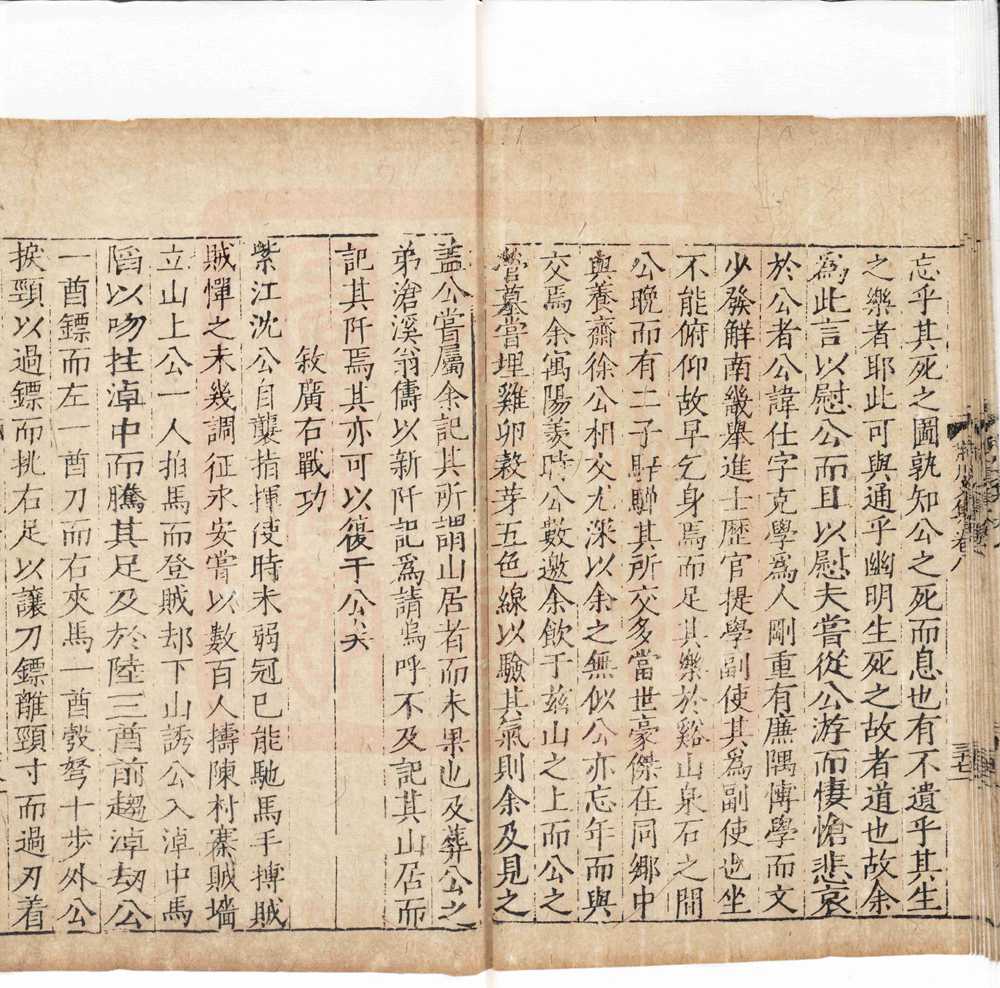 忘乎其死之圖孰知公之死而息也有不遺乎其生
之樂者耶此可與通乎幽明生死之故者道也故余
爲此言以慰公而且以慰夫嘗從公游而悽愴悲哀
於公者公諱仕字克學爲人剛重有廉隅博學而文
少發解南畿舉進士歷官提學副使其爲副使也坐
不能俯仰故早乞身焉而足其樂於谿山泉石之間
公晚而有二子其所交多當世豪傑在同鄉中
與養齋徐公相交尤深以余之無似公亦忘年而與
交焉余寓陽羨時公數邀余飲于茲山之上而公之
營墓嘗埋雞卵穀芽五色線以驗其氣則余及見之
蓋公嘗屬余記其所謂山居者而未果也及葬公之
弟滄溪翁儔以新阡記爲請嗚呼不及記其山居而
記其阡焉其亦可以復于公矣
敘廣右戰功
紫江沈公自襲指揮使時未弱冠已能馳馬手搏賊
賊憚之未幾調征永安嘗以數百人擣陳村寨賊墻
立山上公一人拍馬而登賊却下山誘公入淖中馬
陷以吻拄淖中而騰其足及於陸三酋前趨淖劫公
一酋鏢而左一酋刀而右夾馬一酋彀弩十步外公
捩頸以過鏢而挑右足以讓刀鏢離頸寸而過刃着
荆川文集卷八
三十七